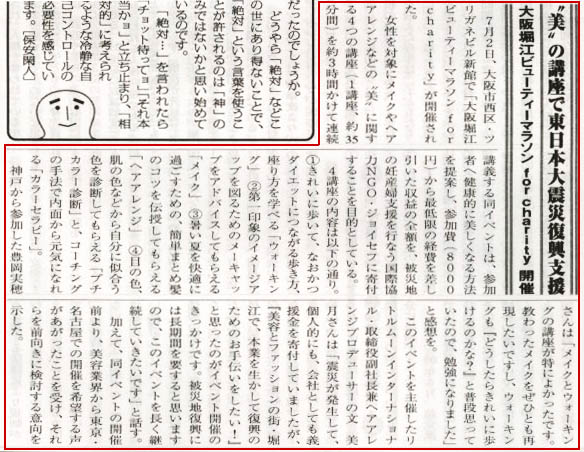 〝美〟の講座で東日本大震災復興支援
大阪堀江ビューティーマラソン for charity 開催
７月２日、大阪市西区・ツ
リガネビル新館で「大阪堀江
ビューティーマラソン for
charity」が開催され
た。
女性を対象にメイクやヘア
アレンジなどの〝美〟に関す
る４つの講座（１講座、約35
分間）を約３時間かけて連続
講義する同イベントは、参加
者へ健康的に美しくなる方法
を提案し、参加費（８０００
円）から最低限の経費を差し
引いた収益の全額を、被災地
の妊産婦支援を行なう国際協
力ＮＧＯ・ジョイセフに寄付
することを目的としている。
４講座の内容は以下の通り。
①きれいに歩いて、なおかつ
ダイエットにつながる歩き方、
座り方を学べる「ウォーキン
グ」②第一印象のイメージア
ップを図るためのメーキャッ
プをアドバイスしてもらえる
「メイク」③暑い夏を快適に
過ごすための、簡単まとめ髪
のコツを伝授してもらえる
「ヘアアレンジ」④目の色、
肌の色などから自分に似合う
色を診断してもらえる「プチ
カラー診断」と、コーチング
の手法で内面から元気になれ
る「カラーセラピー」。
神戸から参加した豊岡実穂
さんは「メイクとウォーキン
グの講座が特によかったです。
教わったメイクをぜひとも再
現したいですし、ウォーキン
グも『どうしたらきれいに歩
けるのかな？』と普段思って
いたので、勉強になりました」
と感想を。
このイベントを主催したリ
トルムーンインターナショナ
ル・取締役副社長兼ヘアアレ
ンジプロデューサーの文　美
月さんは「震災が発生して、
個人的にも、会社としても義
援金を寄付していましたが、
『美容とファッションの街・堀
江で、本業を生かして復興の
ためのお手伝いをしたい！』
と思ったのがイベント開催の
きっかけです。被災地復興に
は長期間を要すると思います
ので、このイベントを長く継
続していきたいです」と話す。
加えて、同イベントの開催
前より、美容業界から東京・
名古屋での開催を希望する声
があがったことを受け、それ
らを前向きに検討する意向を
示した。
だったのでしょうか。
どうやら「絶対」などこ
の世にあり得ないことで、
「絶対」という言葉を使うこ
とが許されるのは「神」の
みではないかと思い始めて
いるのです。
「絶対…」を言われたら
「チョット待ってョ」「それ本
当かョ」と立ち止まり、「相
対的」に考えられ
るような冷静な自
己コントロールの
必要性を感じてい
ます。［保安閑人］